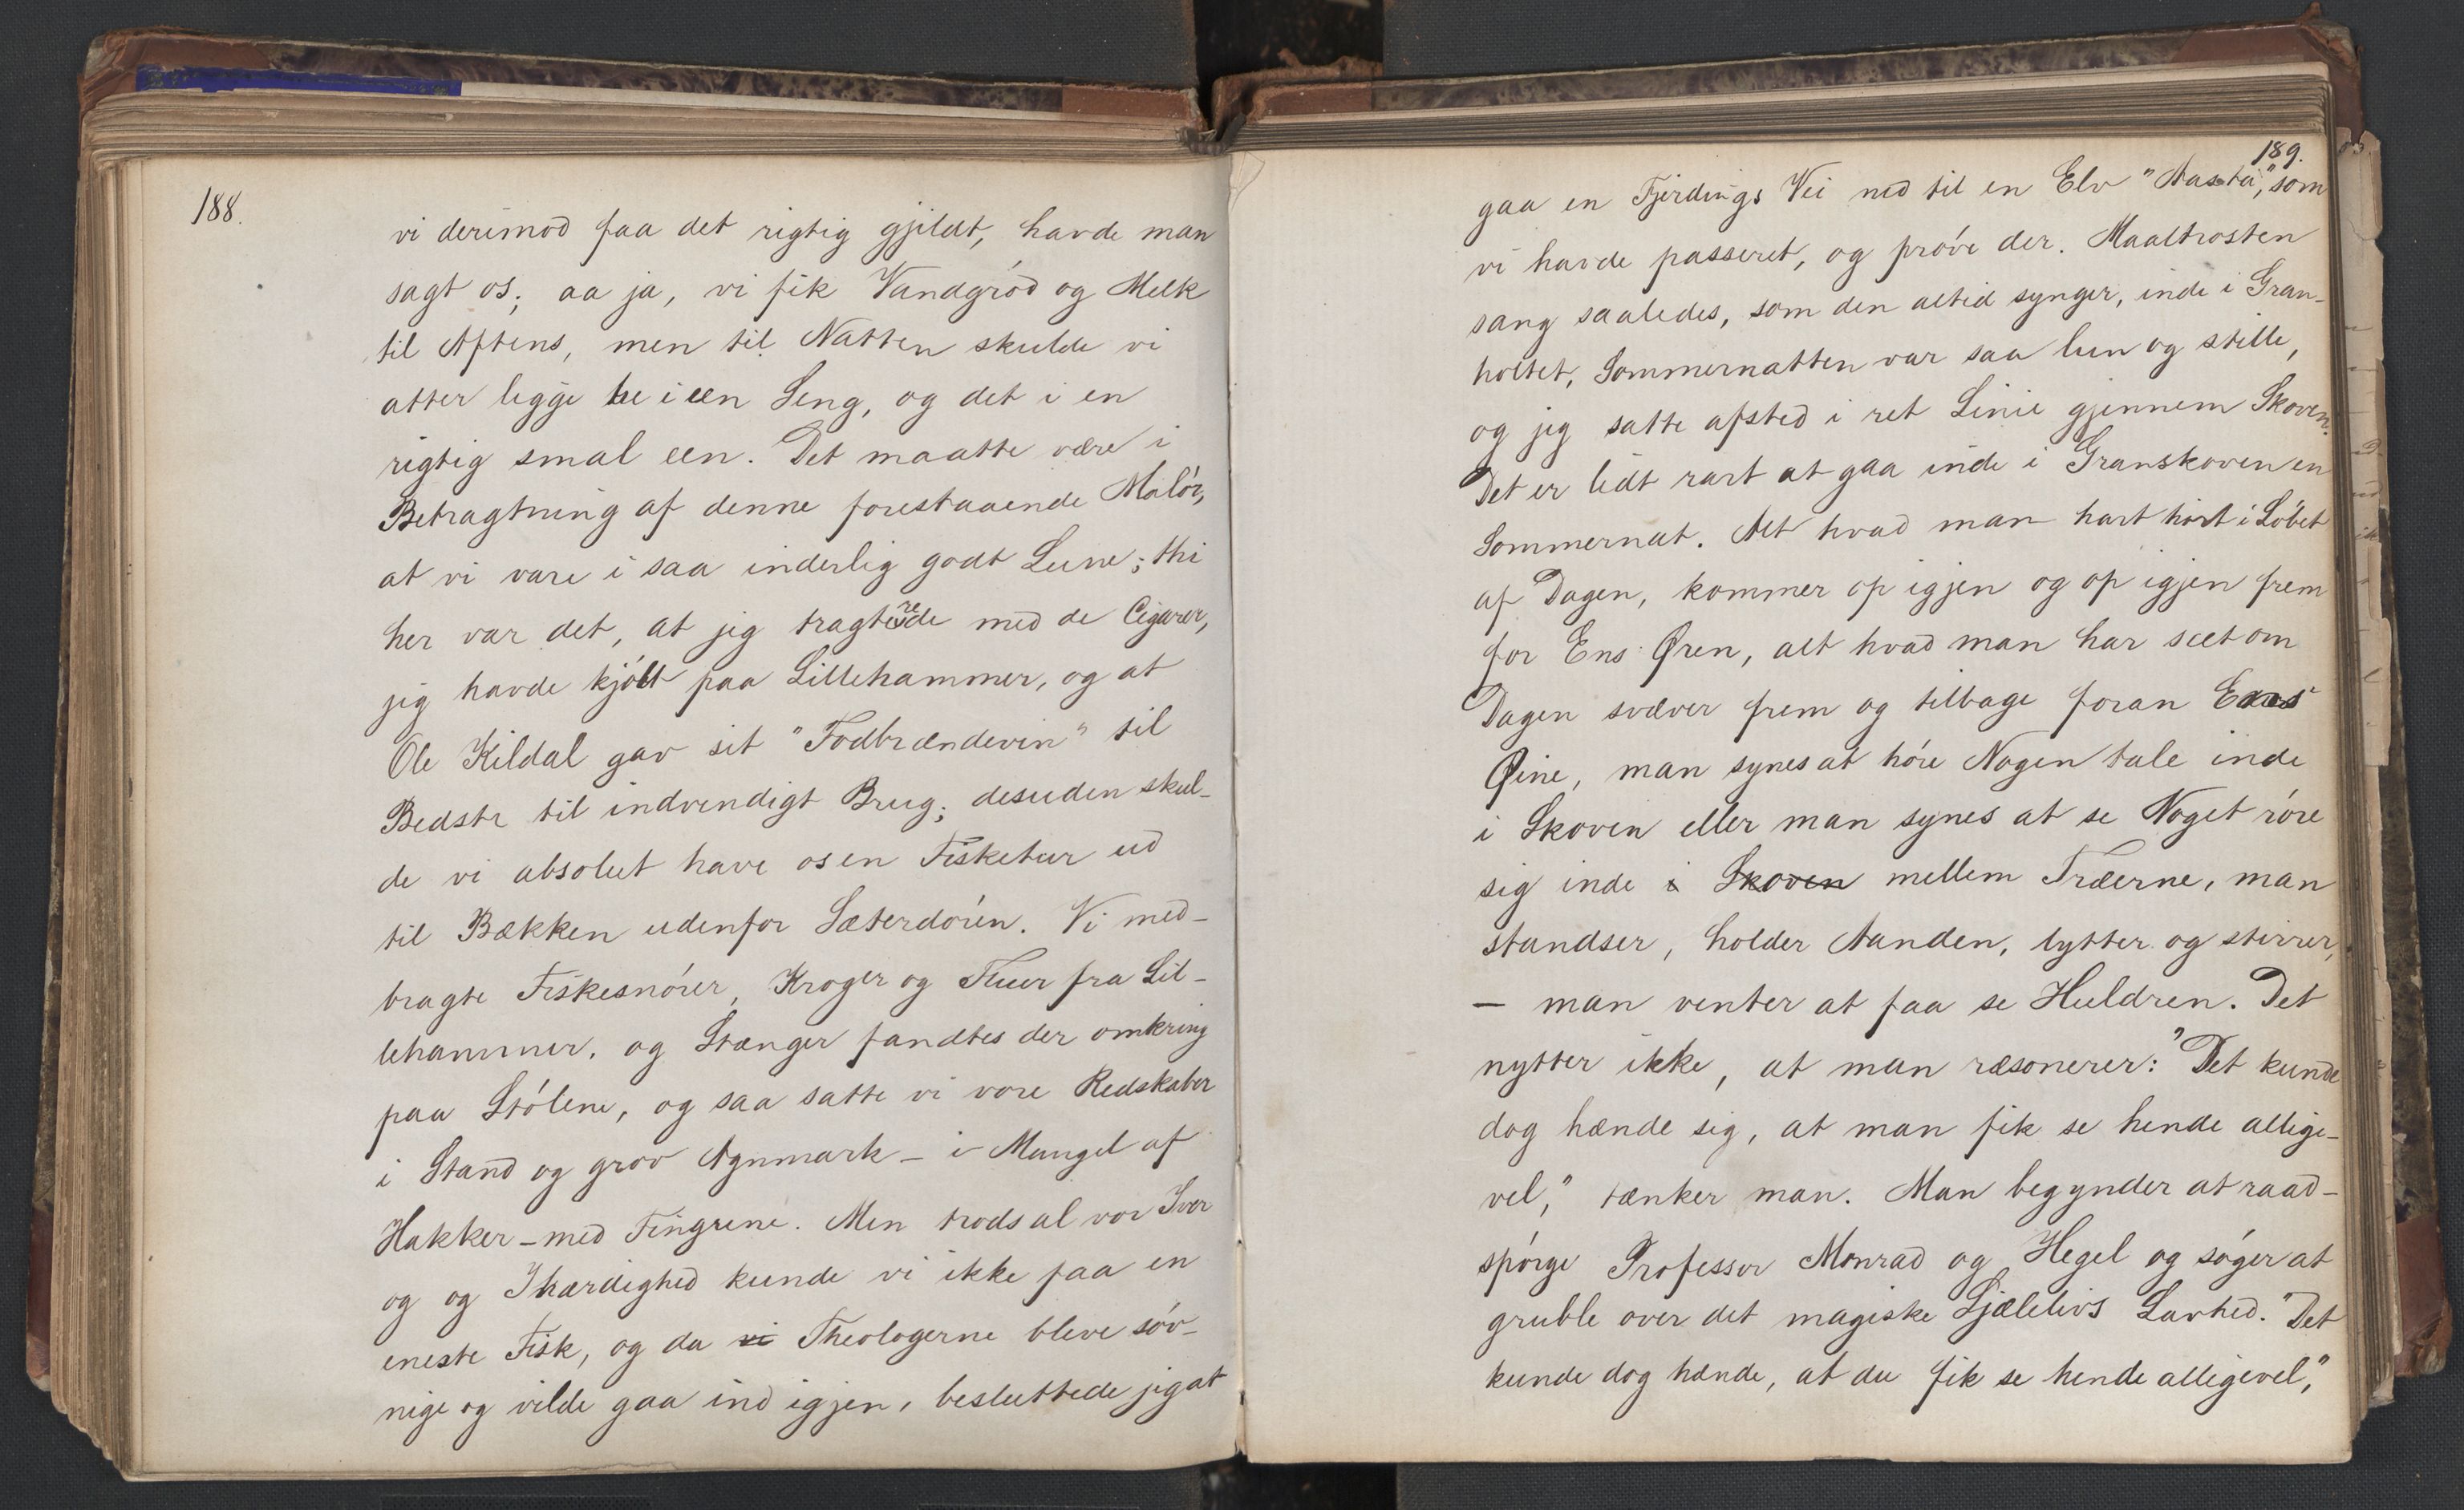 188.
vi derimod faa det rigtig gjildt, havde man
sagt os; aa ja, vi fik Vandgrød og Melk
til Aftens, men til Natten skulde vi
atter ligge tre i een Seng, og det i en
rigtig smal een. Det maatte være i
Betragtning af denne forestaaende Malør,
at vi vare i saa inderlig godt Lune; thi
her var det, at jeg tragterede med de Cigarer,
jeg havde kjøbt paa Lillehammer, og at
Ole Kildal gav sit "Fodbrændevin" til
Bedste til indvendigt Brug; desuden skul-
de vi absolut have os en Fisketur ud
til Bækken udenfor Sæterdøren. Vi med-
bragte Fiskesnører, Kroger og Fluer fra Lil-
lehammer, og Stænger fandtes der omkring
paa Stølene, og saa satte vi vore Redskaber
i Stand og grov Agnmark - i Mangel af
Hakker - med Fingrene. Men trods al vor Iver
og og Ihærdighed kunde vi ikke faa en
eneste Fisk, og da vi Theologerne bleve søv-
nige og vilde gaa ind igjen, besluttede jeg at
189.
gaa en Fjerdings Vei ned til en Elv "Aasta", som
vi havde passeret, og prøve der. Maaltrosten
sang saaledes, som den altid synger, inde i Gran-
holtet, Sommernatten var saa lun og stille,
og jeg satte afsted i ret Linie gjennem Skoven.
Det er lidt rart at gaa inde i Granskoven en
Sommernat. Alt hvad man hart hørt i Løbet
af Dagen, kommer op igjen og op igjen frem
for Ens Øren, alt hvad man har seet om
Dagen svæver frem og tilbage foran Ens
Øine, man synes at høre Nogen tale inde
i Skoven eller man synes at se Noget røre
sig inde i Skoven mellem Træerne, man
standser, holder Aanden, lytter og stirrer,
— man venter at faa se Huldren. Det
nytter ikke, at man ræsonerer: "Det kunde
dog hænde sig, at man fik se hende allige-
vel," tænker man. Man begynder at raad-
spørge Professor Monrad og Hegel og søger at
gruble over det magiske Sjælelivs Lavhed. "Det
kunde dog hænde, at du fik se hende alligevel,"